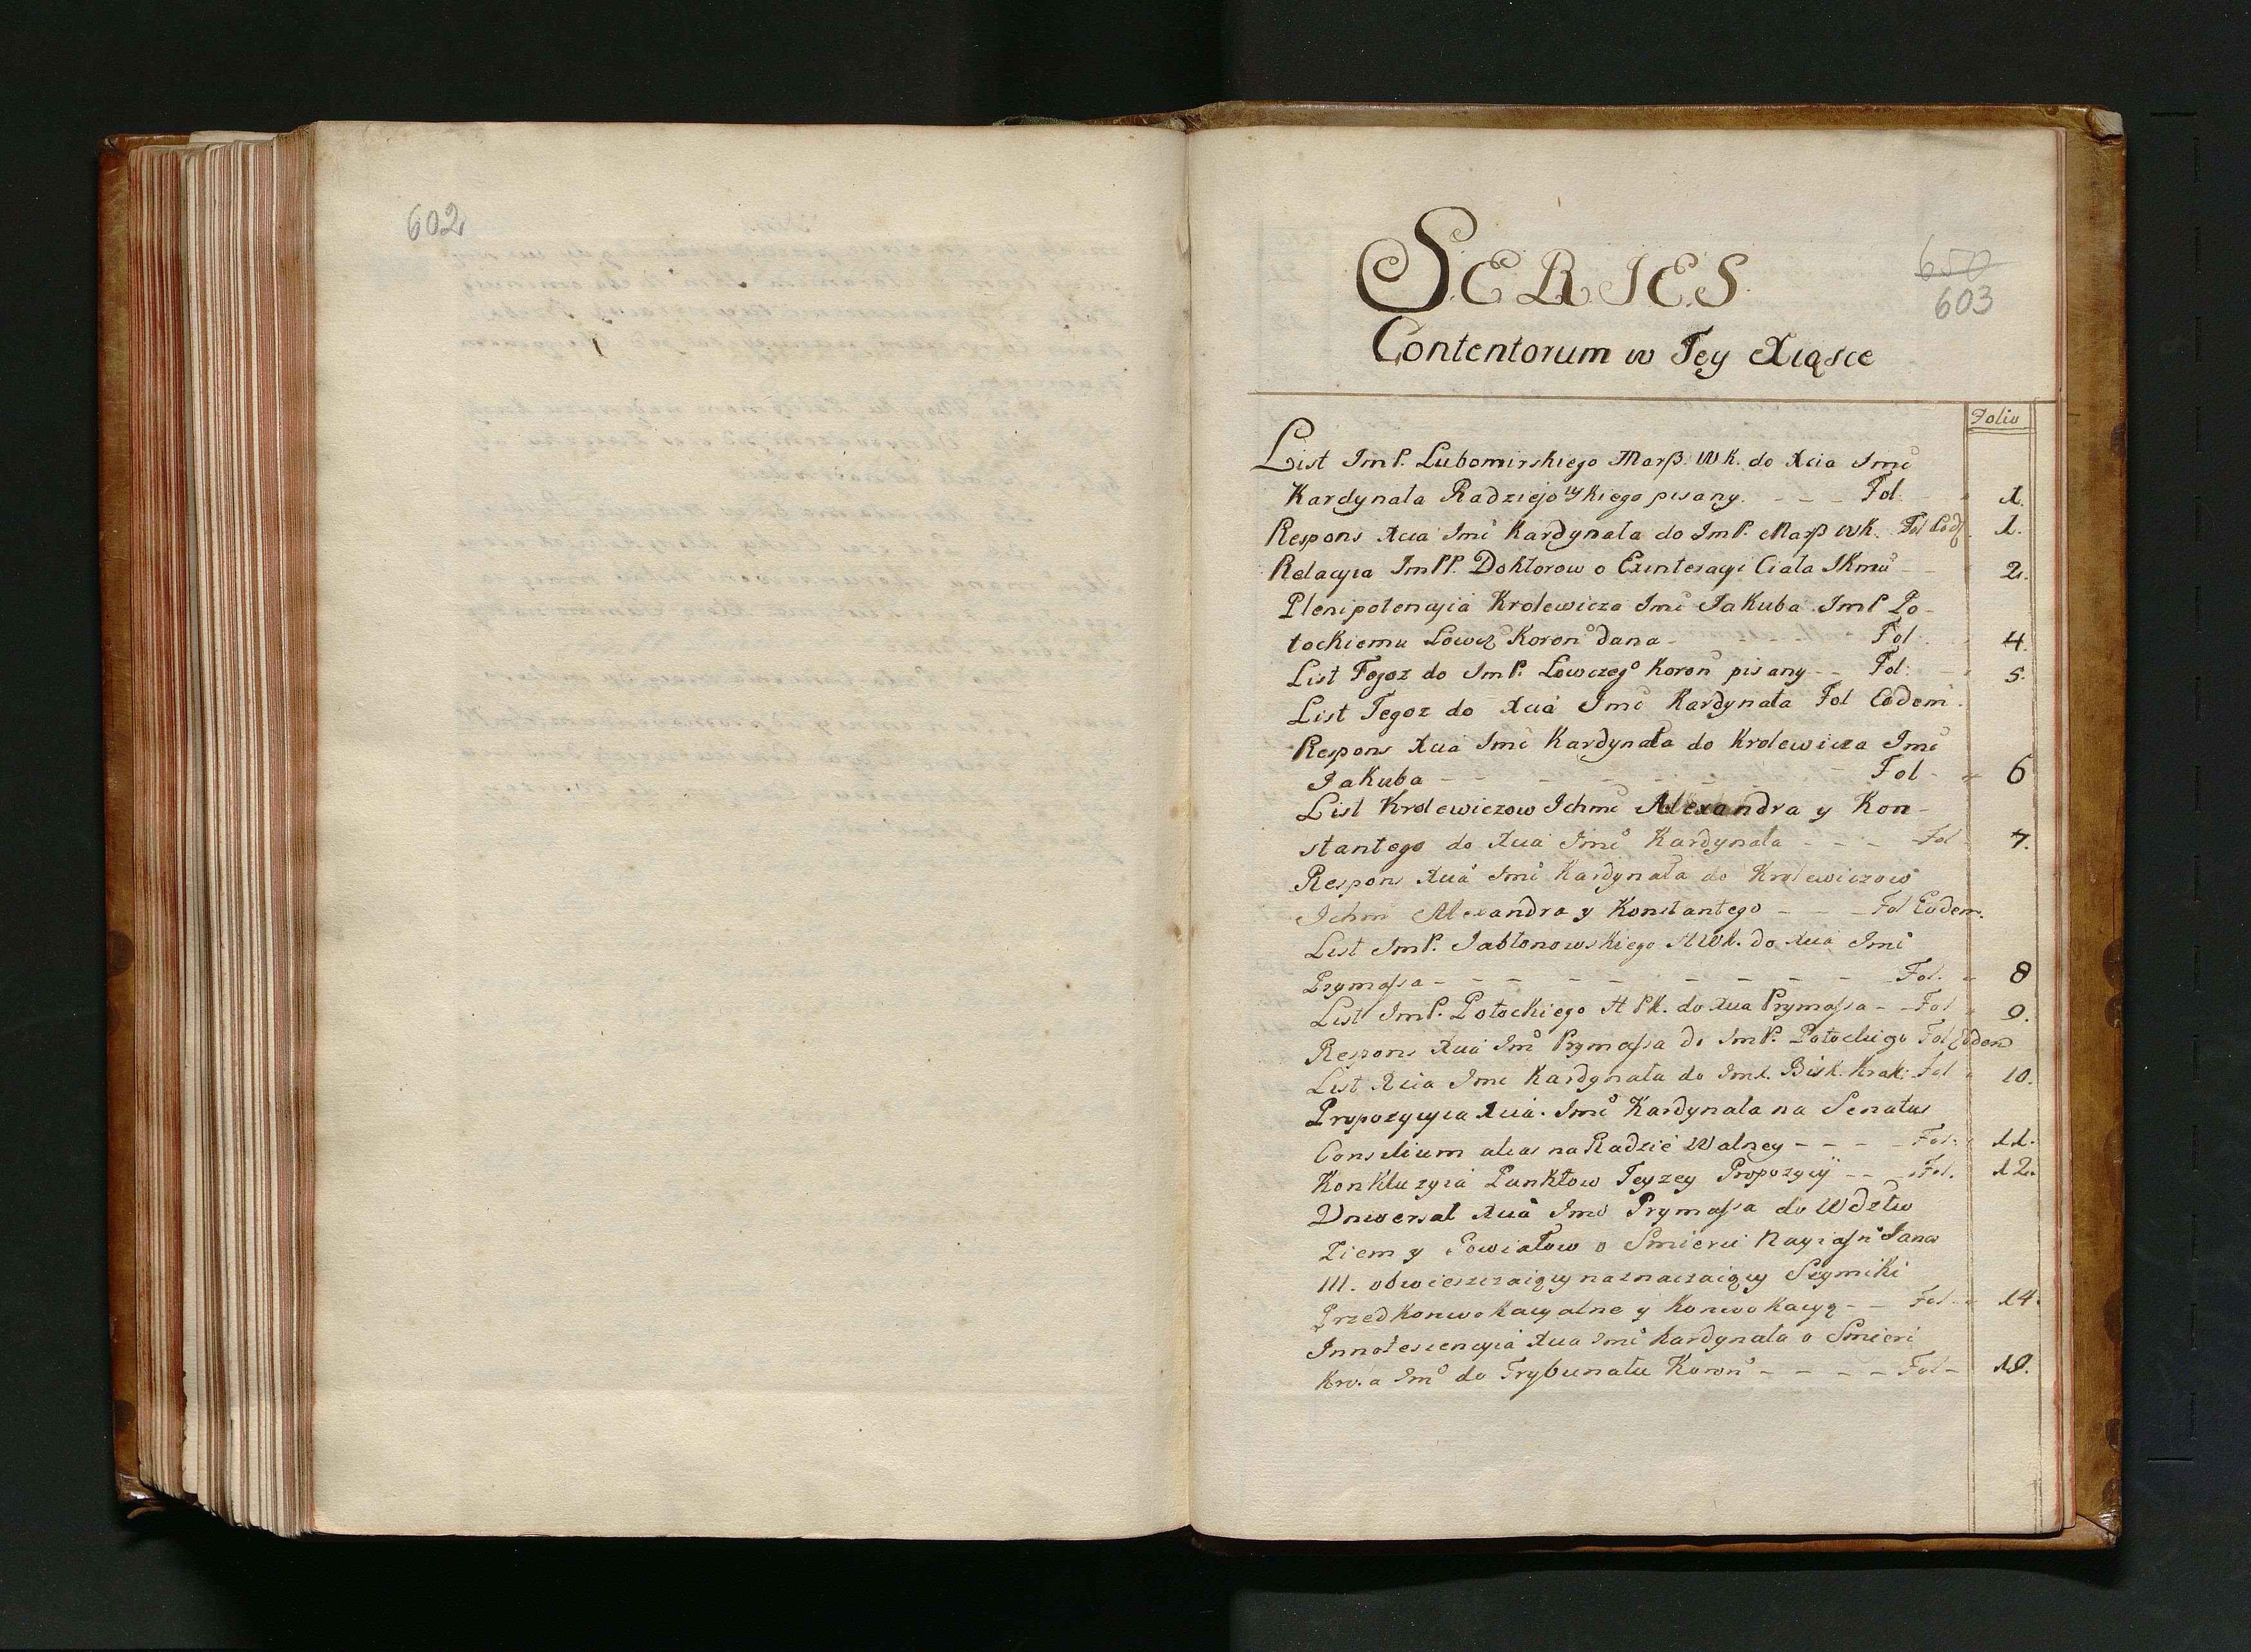 602
650
603
SERIES
Contentorum w Tey Xiąsce
Folio
List ImP. Lubomirskiego Marß. WK. do Xcia Imć
Kardynała Radziejowskiego pisany. - - - Fol. 1.
Respons Xcia Imć Kardynała do ImP. Marß WK. Fol Eod 1.
Relacyia ImPP. Doktorow o Exinteracyi Ciała JKmći 2.
Plenipotencyia Krolewicza Imć Jakuba ImP Po-
tockiemu Łowcz Koron dana - Fol. 4.
List Tegoz do ImP. Łowczego Koron pisany - - Fol. 5.
List Tegoz do Xcia Imć Kardynała Fol Eodem.
Respons Xcia Imć Kardynała do Krolewicza Imć
Jakuba - - - - - - - Fol - 6
List Krolewiczow Ichmć Alexandra y Kon-
stantego do Xcia Imć Kardynała - - - Fol 7.
Respons Xcia Imć Kardynała do Krolewiczow
Ichm Alexandra y Konstantego - - - Fol Eodem.
List ImP. Jabłonowskiego HWK. do Xcia Imć
Prymassa - - - - - - - - Fol. 8
List ImP. Potockiego H PK. do Xcia Prymassa - - Fol 9.
Respons Xcia Imć Prymassa do ImP. Potockiego Fol Eodem
List Xcia Imć Kardynała do Imć. Bisk. Krak: Fol 10.
Propozycyia Xcia Imć Kardynała na Senatus
Consilium alias na Radzie Walney - - - - Fol. 11.
Konkluzyia Punktow Teyzey Propozycyi - - Fol. 12.
Uniwersał Xcia Imć Prymassa do Wdztw
Ziem y Powiatow o Smierci Nayiasn Jana
III. obwieszczaiący naznaczaiący Seymiki
Przedkonwokacyalne y Konwokacyą - - Fol - 14.
Innotescencyia Xcia Imć Kardynała o Smierci
Kro. a Imć do Trybunału Koron - - - - Fol -